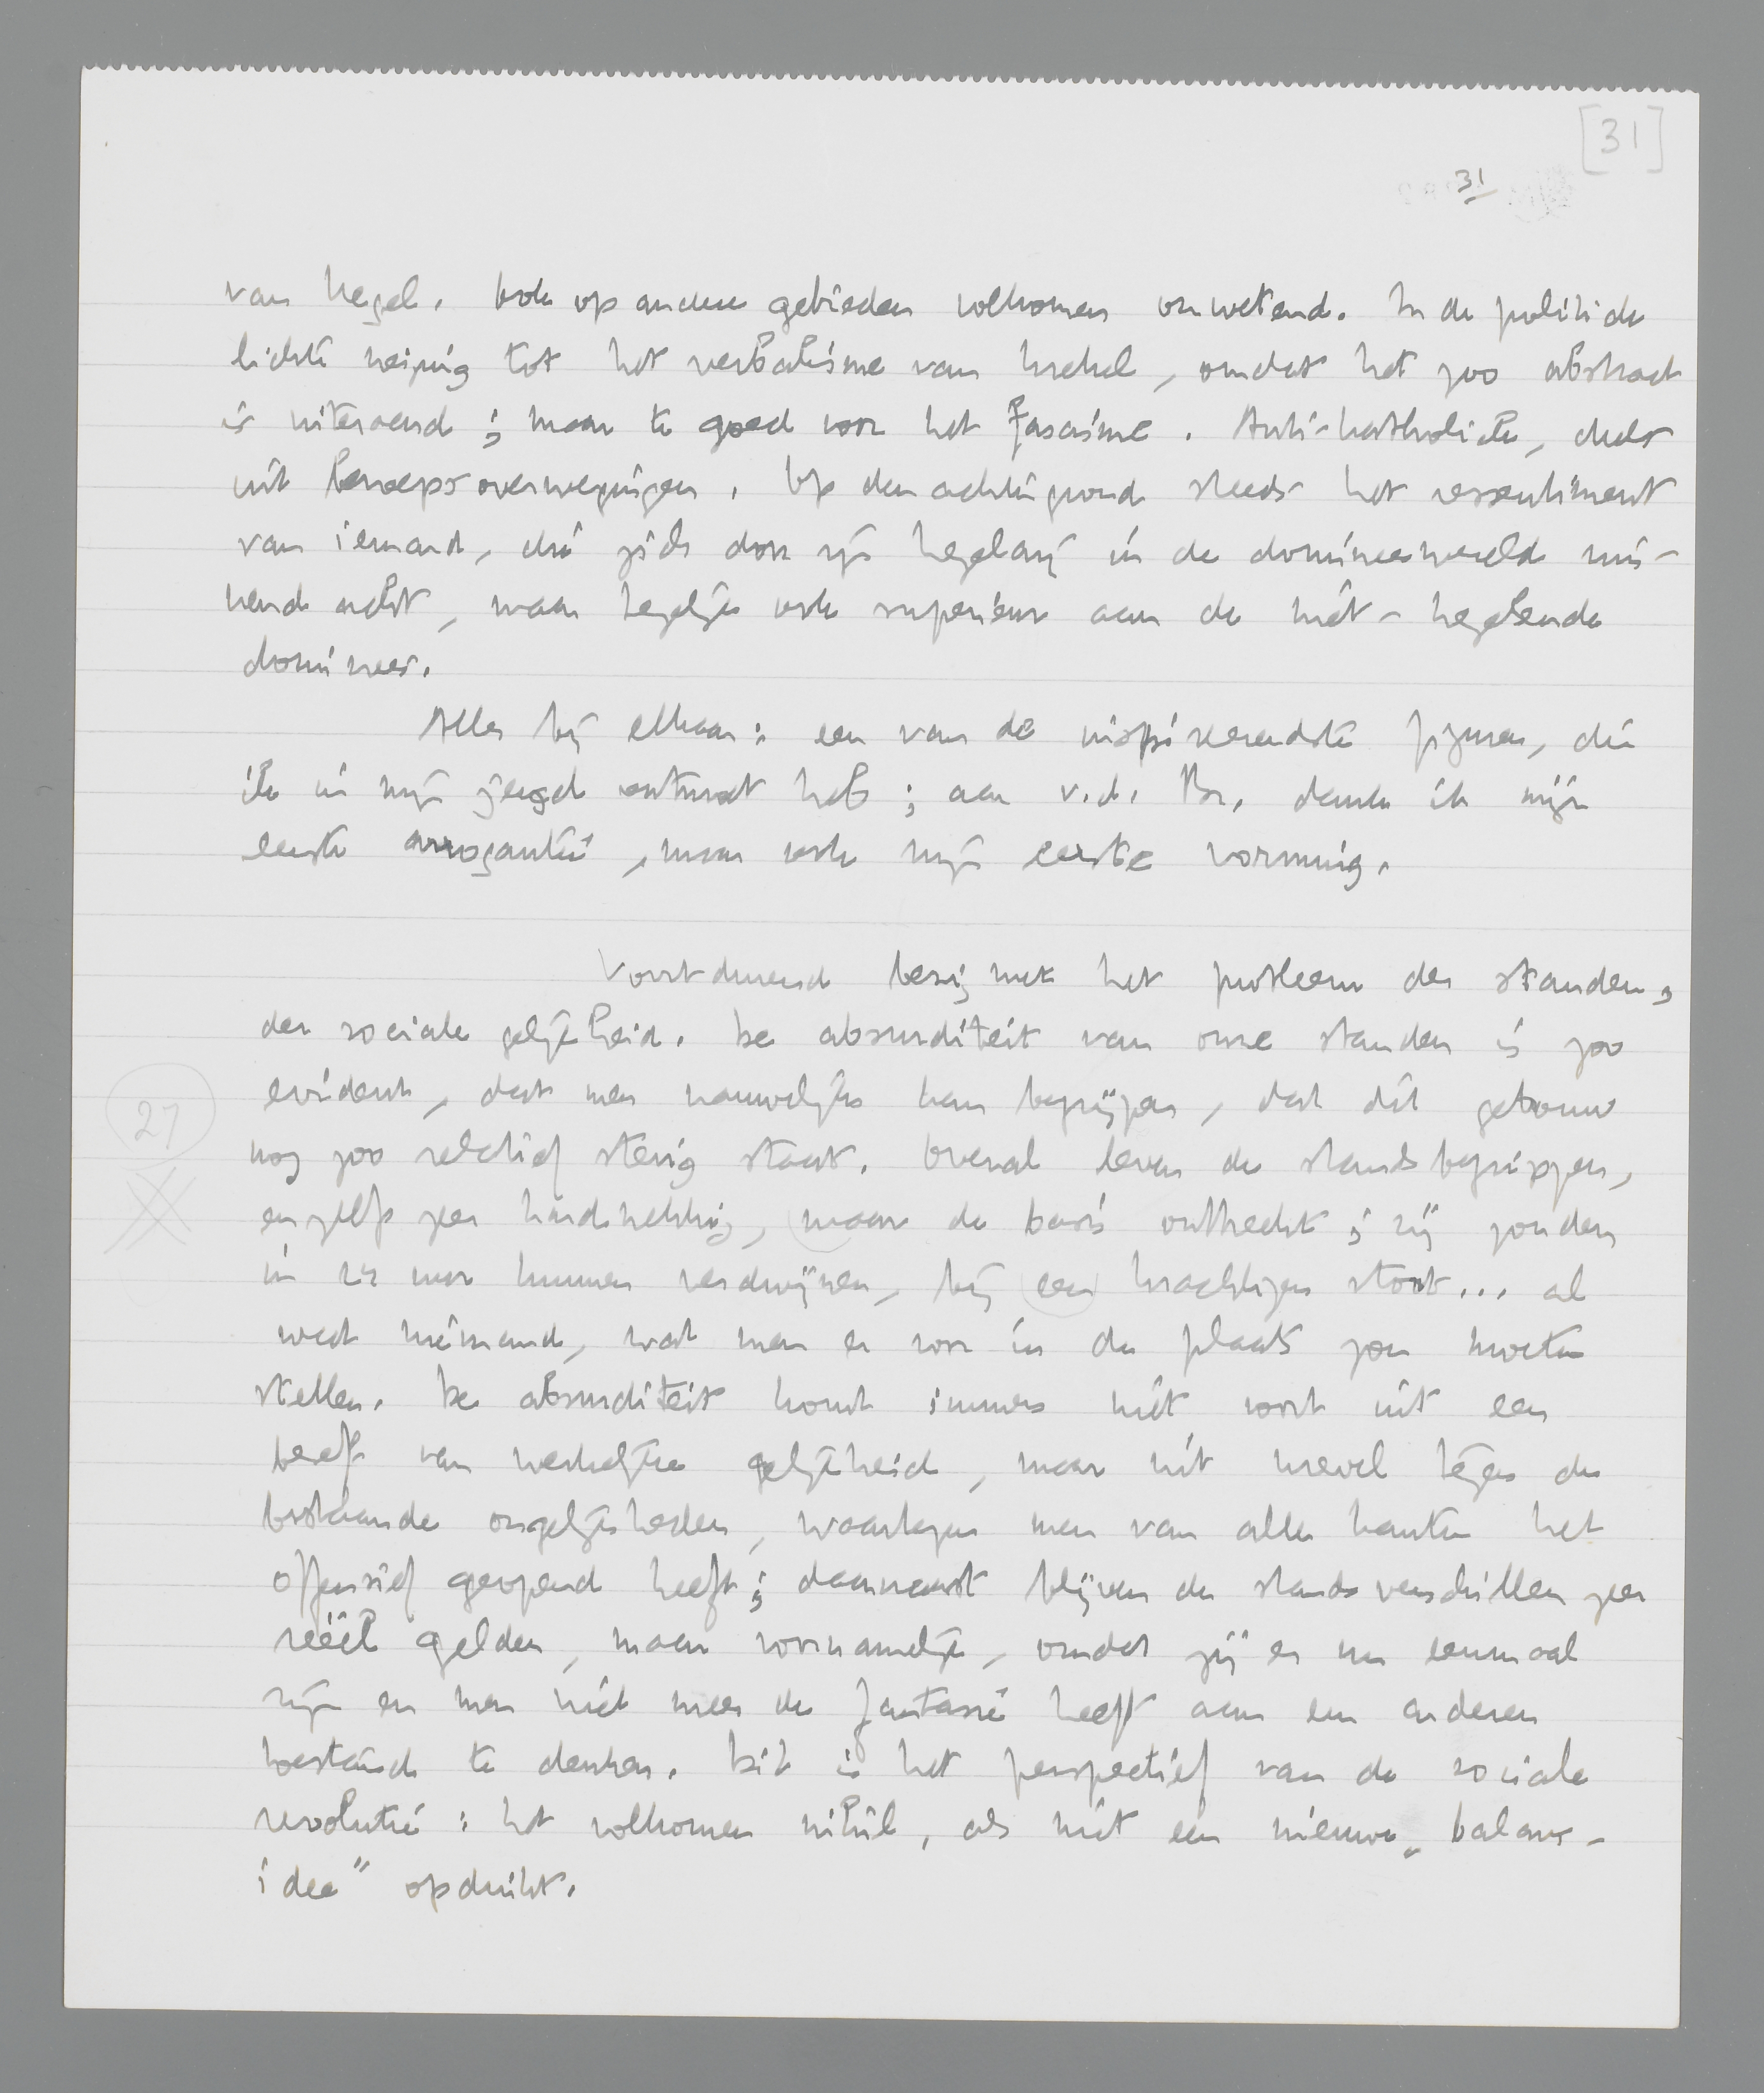 [31]
31
van Hegel. Ook op andere gebieden volkomen onwetend. In de politiek
lichte neiging tot het verbalisme van Krekel, omdat het zoo abstract
is uiteraard; maar te goed voor het fascisme. Anti-katholiek, deels
uit beroepsoverwegingen. Op den achtergrond steeds het ressentiment
van iemand, die zich door zijn hegelarij in de domineeswereld mis-
kend acht, maar tegelijk ook superieur aan de niet-hegelende
dominees.
Alles bij elkaar: een van de inspireerendste figuren, die
ik in mijn jeugd ontmoet heb; aan v.d. Br. dank ik mijn
eerste arrogantie, maar ook mijn eerste vorming.
Voortdurend bezig met het probleem der standen,
der sociale gelijkheid. De absurditeit van onze standen is zoo
evident, dat men nauwelijks kan begrijpen, dat dit gebouw
nog zoo relatief stevig staat. Overal leven de standsbegrippen,
en zelfs zeer hardnekkig, maar de basis ontbreekt; zij zouden
in 24 uur kunnen verdwijnen, bij een krachtigen stoot... al
weet niemand, wat men er voor in de plaats zou moeten
stellen. De absurditeit komt immers niet voort uit een
besef van werkelijke gelijkheid, maar uit wrevel tegen de
bestaande ongelijkheden, waartegen men van alle kanten het
offensief geopend heeft; daarnaast blijven de standsverschillen zeer
reëel gelden, maar voornamelijk, omdat zij er nu eenmaal
zijn en men niet meer de fantasie heeft aan een anderen
toestand te denken. Dit is het perspectief van de sociale
revolutie: het volkomen nihil, als niet een nieuwe „balans-
idee" opduikt.
27